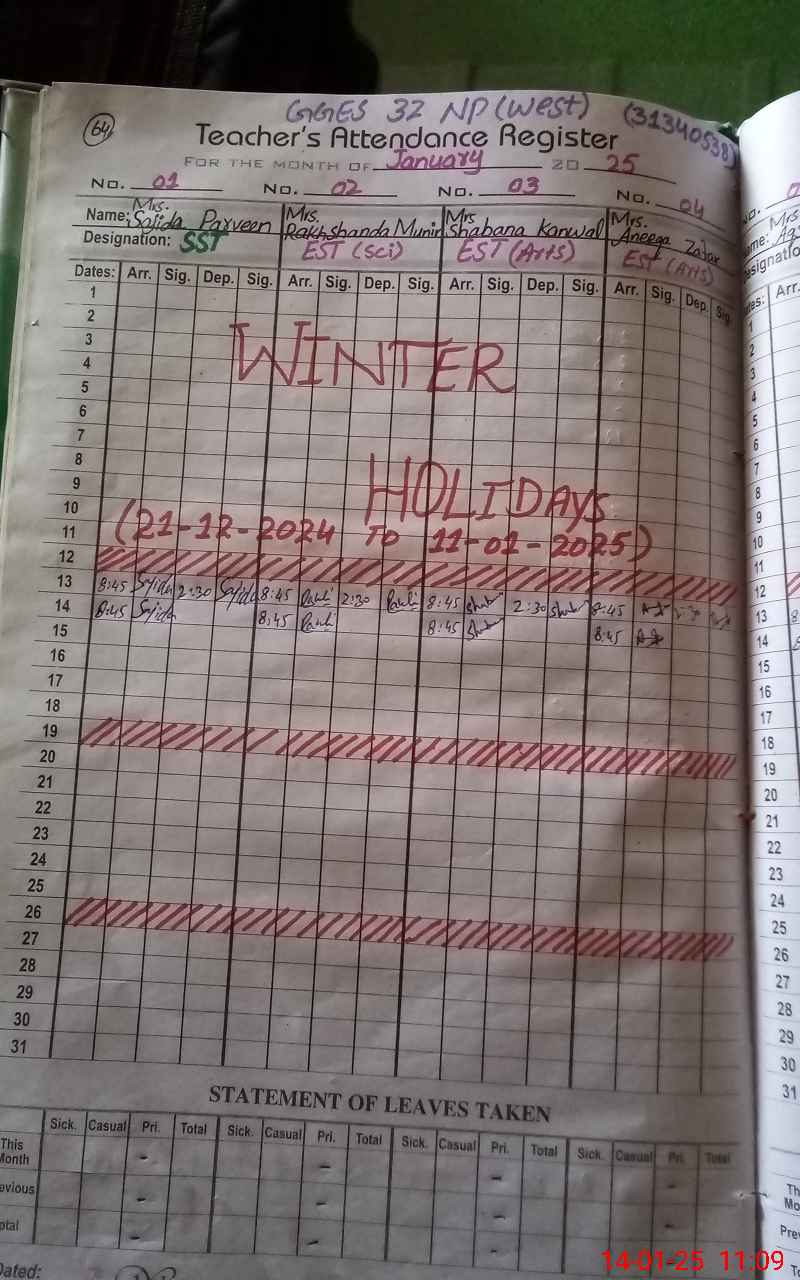 GGES 32 NP (West) (31340538)
64
Teacher's Attendance Register
FOR THE MONTH OF January 20 25
No. 01 No. 02 No. 03 No. 04
Name: Mrs. Sajida Parveen Mrs. Rakhshanda Munir Mrs Shabana Kanwal Mrs. Aneeqa Zafar
Designation: SST EST (Sci) EST (Arts) EST (Arts)
Dates: Arr. Sig. Dep. Sig. Arr. Sig. Dep. Sig. Arr. Sig. Dep. Sig. Arr. Sig. Dep. Sig.
1
2
3
WINTER
4
5
6
7
8
9
HOLIDAYS
10
11
(21-12-2024 TO 11-01-2025)
12
13 8:45 Sajida 2:30 Sajida 8:45 2:30 8:45 2:30 8:45
14 8:45 Sajida 8:45 8:45 8:45
15
16
17
18
19
20
21
22
23
24
25
26
27
28
29
30
31
STATEMENT OF LEAVES TAKEN
Sick. Casual Pri. Total Sick. Casual Pri. Total Sick. Casual Pri. Total Sick. Casual Pri. Total
This Month - - - -
evious - - - -
otal - - -
Dated:
Arr.
1
2
3
4
5
6
7
8
9
10
11
12
13 8
14
15
16
17
18
19
20
21
22
23
24
25
26
27
28
29
30
31
14-01-25 11:09